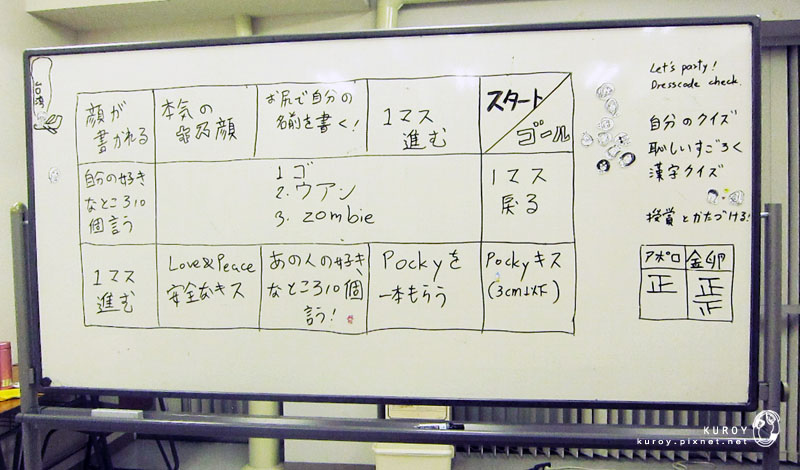 Let's party!
Dresscode check.
自分のクイズ
恥しいすごろく
漢字クイズ
授賞とかたづける!
アポロ
金卵
正
正
正
顔が
書かれる
本気の
変な顔
お尻で自分の
名前を書く!
1マス
進む
スタート
ゴール
自分の好き
なところ10
個言う
1 ゴ
2. ウアン
3. zombie
1マス
戻る
1マス
進む
Love&Peace
安全なキス
あの人の好き
なところ10個
言う!
Pockyを
一本もらう
Pockyキス
(3cm以下)
KUROY
kuroy.pixnet.net